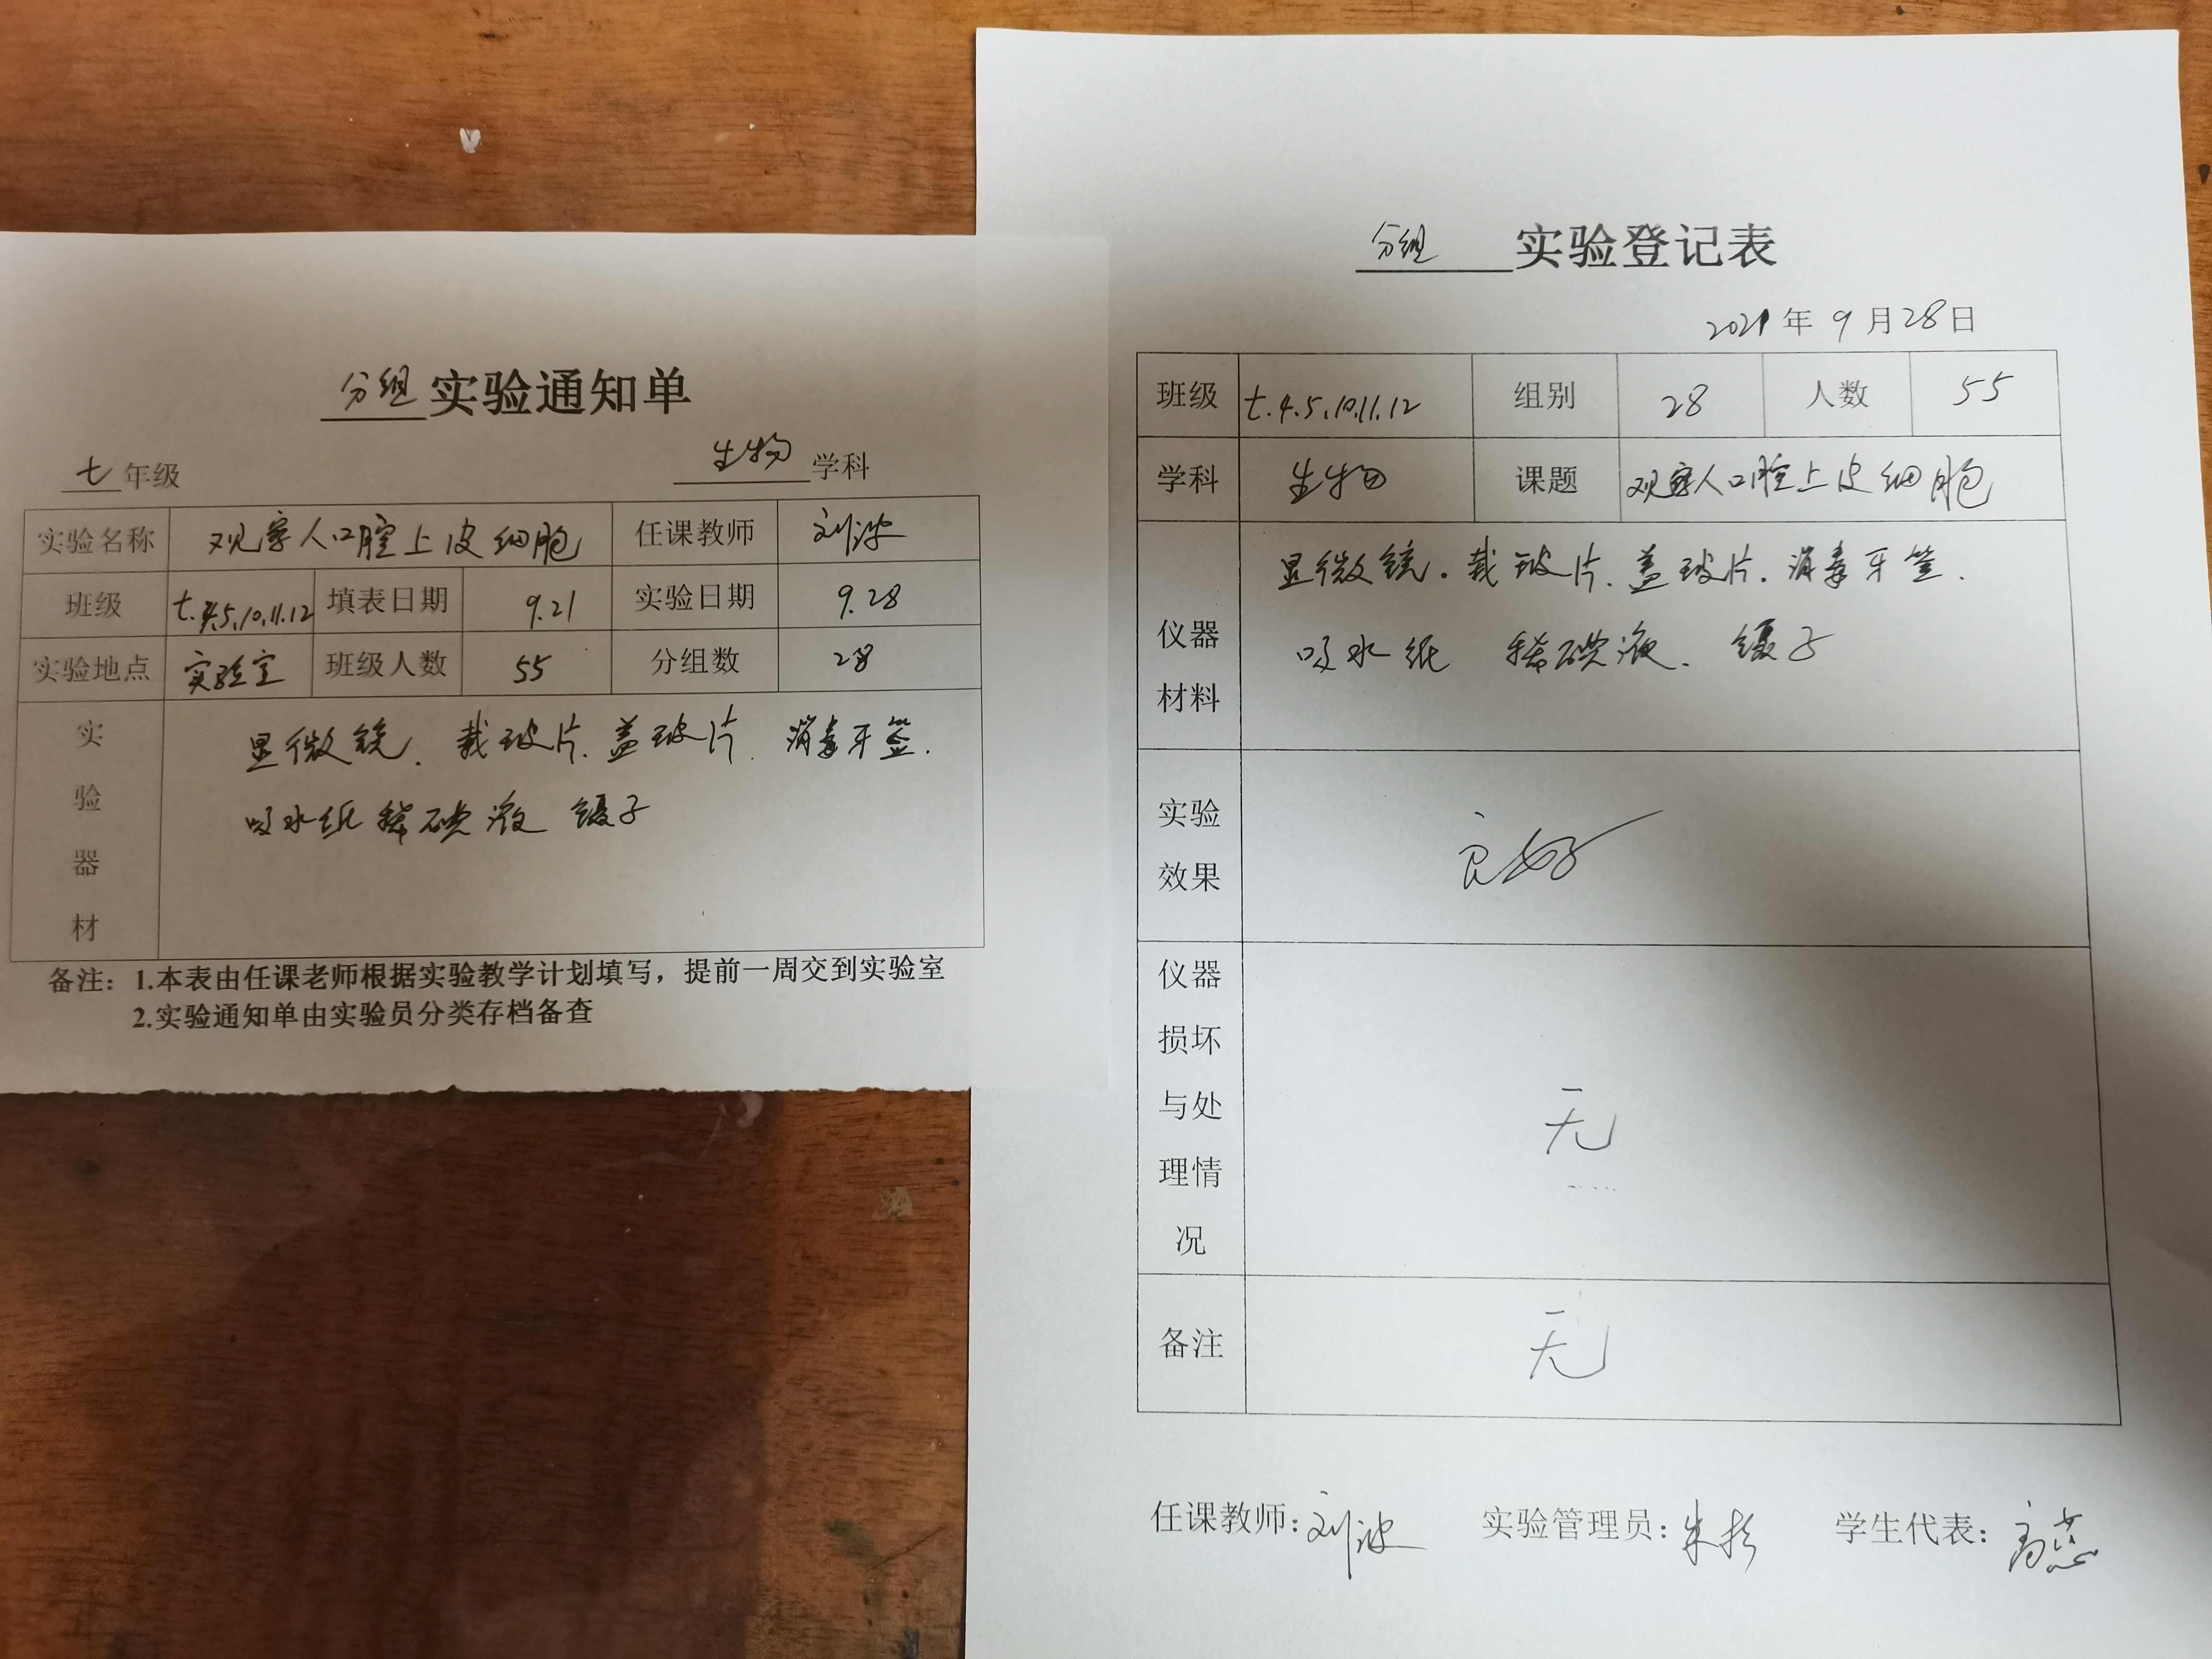 分组实验通知单
七年级 生物学科
实验名称 观察人口腔上皮细胞 任课教师 刘波
班级 七.4.5.10.11.12 填表日期 9.21 实验日期 9.28
实验地点 实验室 班级人数 55 分组数 28
实验器材
显微镜. 载玻片. 盖玻片. 消毒牙签.
吸水纸 稀碘液 镊子
备注：1.本表由任课老师根据实验教学计划填写，提前一周交到实验室
2.实验通知单由实验员分类存档备查
分组 实验登记表
2021年9月28日
班级 七.4.5.10.11.12 组别 28 人数 55
学科 生物 课题 观察人口腔上皮细胞
仪器材料
显微镜. 载玻片. 盖玻片. 消毒牙签.
吸水纸 稀碘液. 镊子
实验效果 良好
仪器损坏与处理情况 无
备注 无
任课教师：刘波 实验管理员：朱杉 学生代表：高蕊